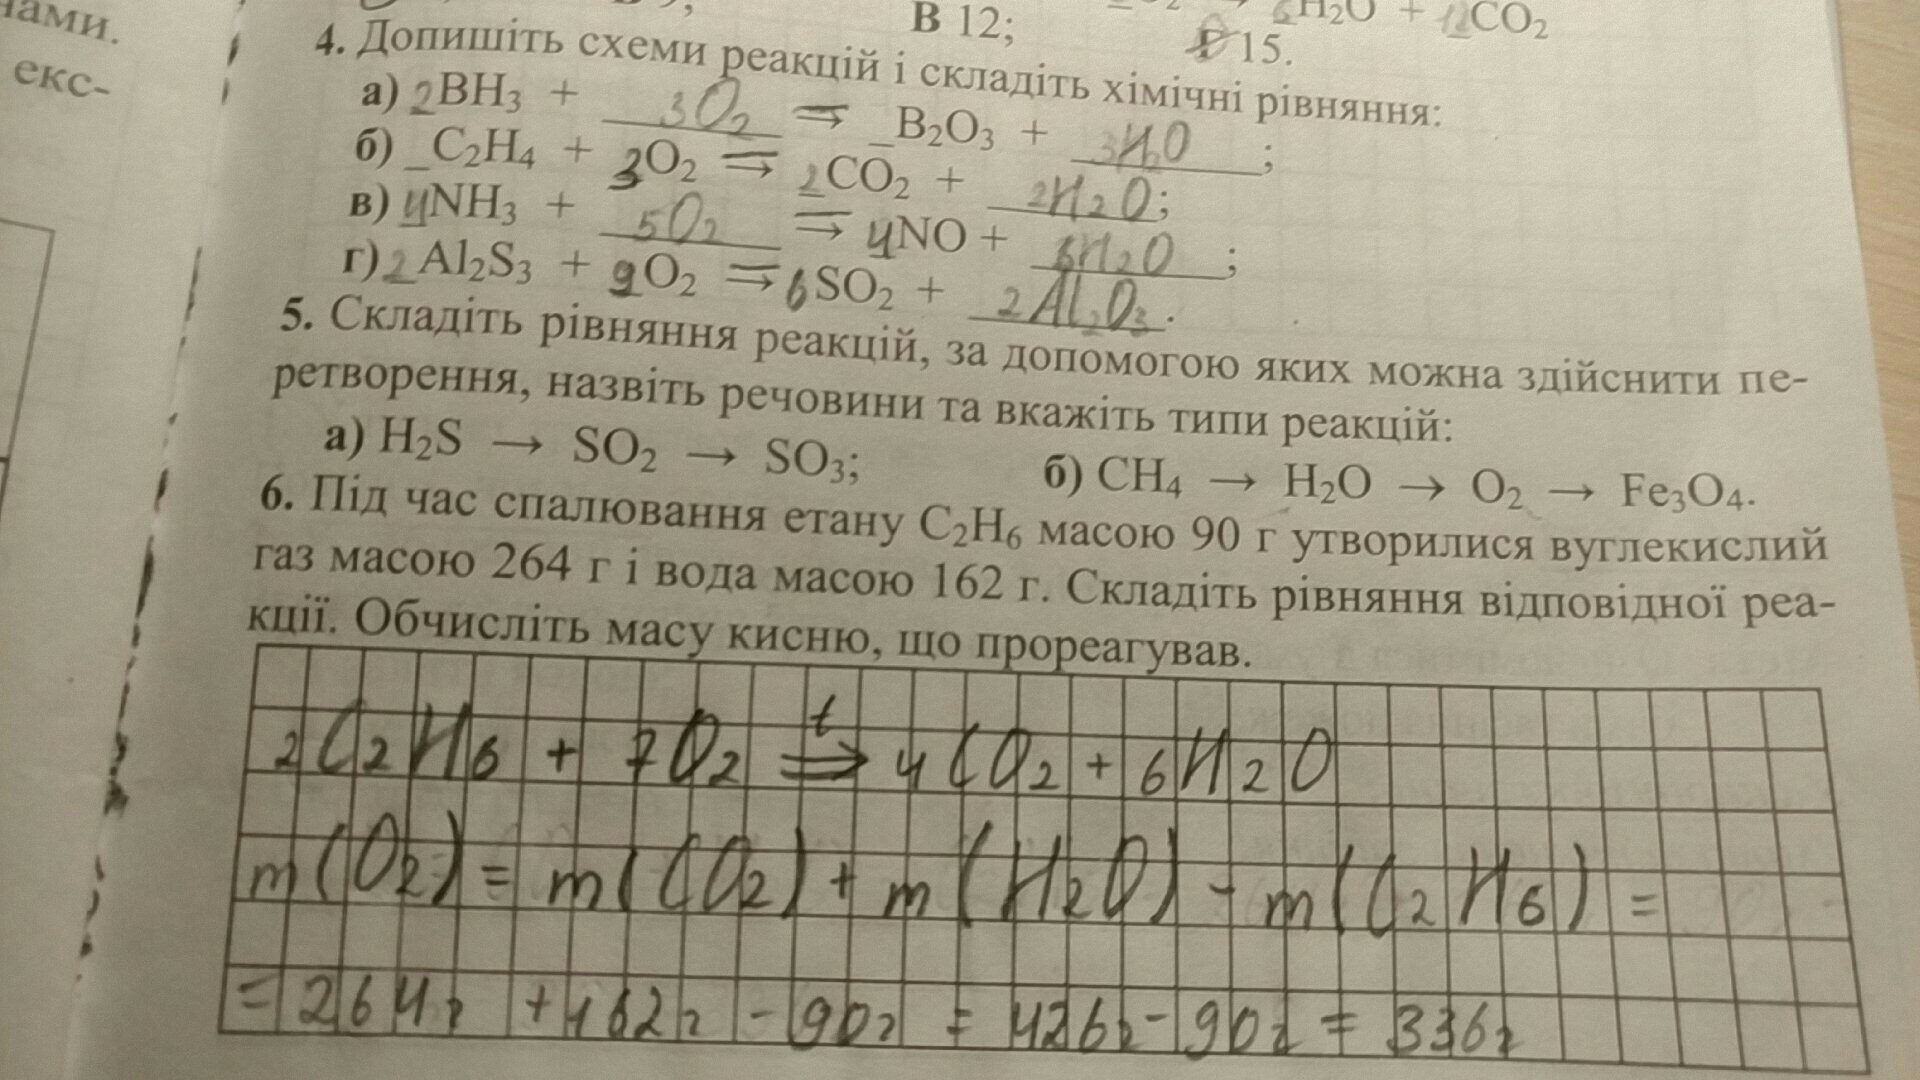 нами.
екс-
В 12;
H₂O + 12CO₂
Г 15.
4. Допишіть схеми реакцій і складіть хімічні рівняння:
а) 2BH₃ + 3O₂ ⇒ _B₂O₃ + 3H₂O ;
б) _C₂H₄ + 3O₂ ⇒ 2CO₂ + 2H₂O;
в) 4NH₃ + 5O₂ ⇒ 4NO + 6H₂O ;
г) 2Al₂S₃ + 9O₂ ⇒ 6SO₂ + 2Al₂O₃.
5. Складіть рівняння реакцій, за допомогою яких можна здійснити пе-
ретворення, назвіть речовини та вкажіть типи реакцій:
а) H₂S → SO₂ → SO₃; б) CH₄ → H₂O → O₂ → Fe₃O₄.
6. Під час спалювання етану C₂H₆ масою 90 г утворилися вуглекислий
газ масою 264 г і вода масою 162 г. Складіть рівняння відповідної реа-
кції. Обчисліть масу кисню, що прореагував.
t
2C₂H₆ + 7O₂ ⇒ 4CO₂ + 6H₂O
m(O₂) = m(CO₂) + m(H₂O) - m(C₂H₆) =
= 264г + 162г - 90г = 426г - 90г = 336г